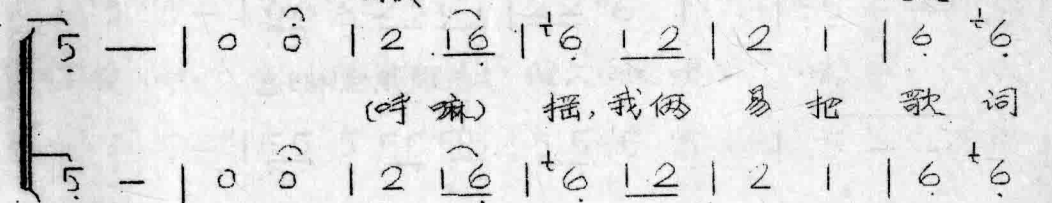 5 — | 0 0 | 2 1 6 | 6 1 2 | 2 1 | 6 6
(呼嘛) 摇,我俩 易 把 歌 词
5 — | 0 0 | 2 1 6 | 6 1 2 | 2 1 | 6 6